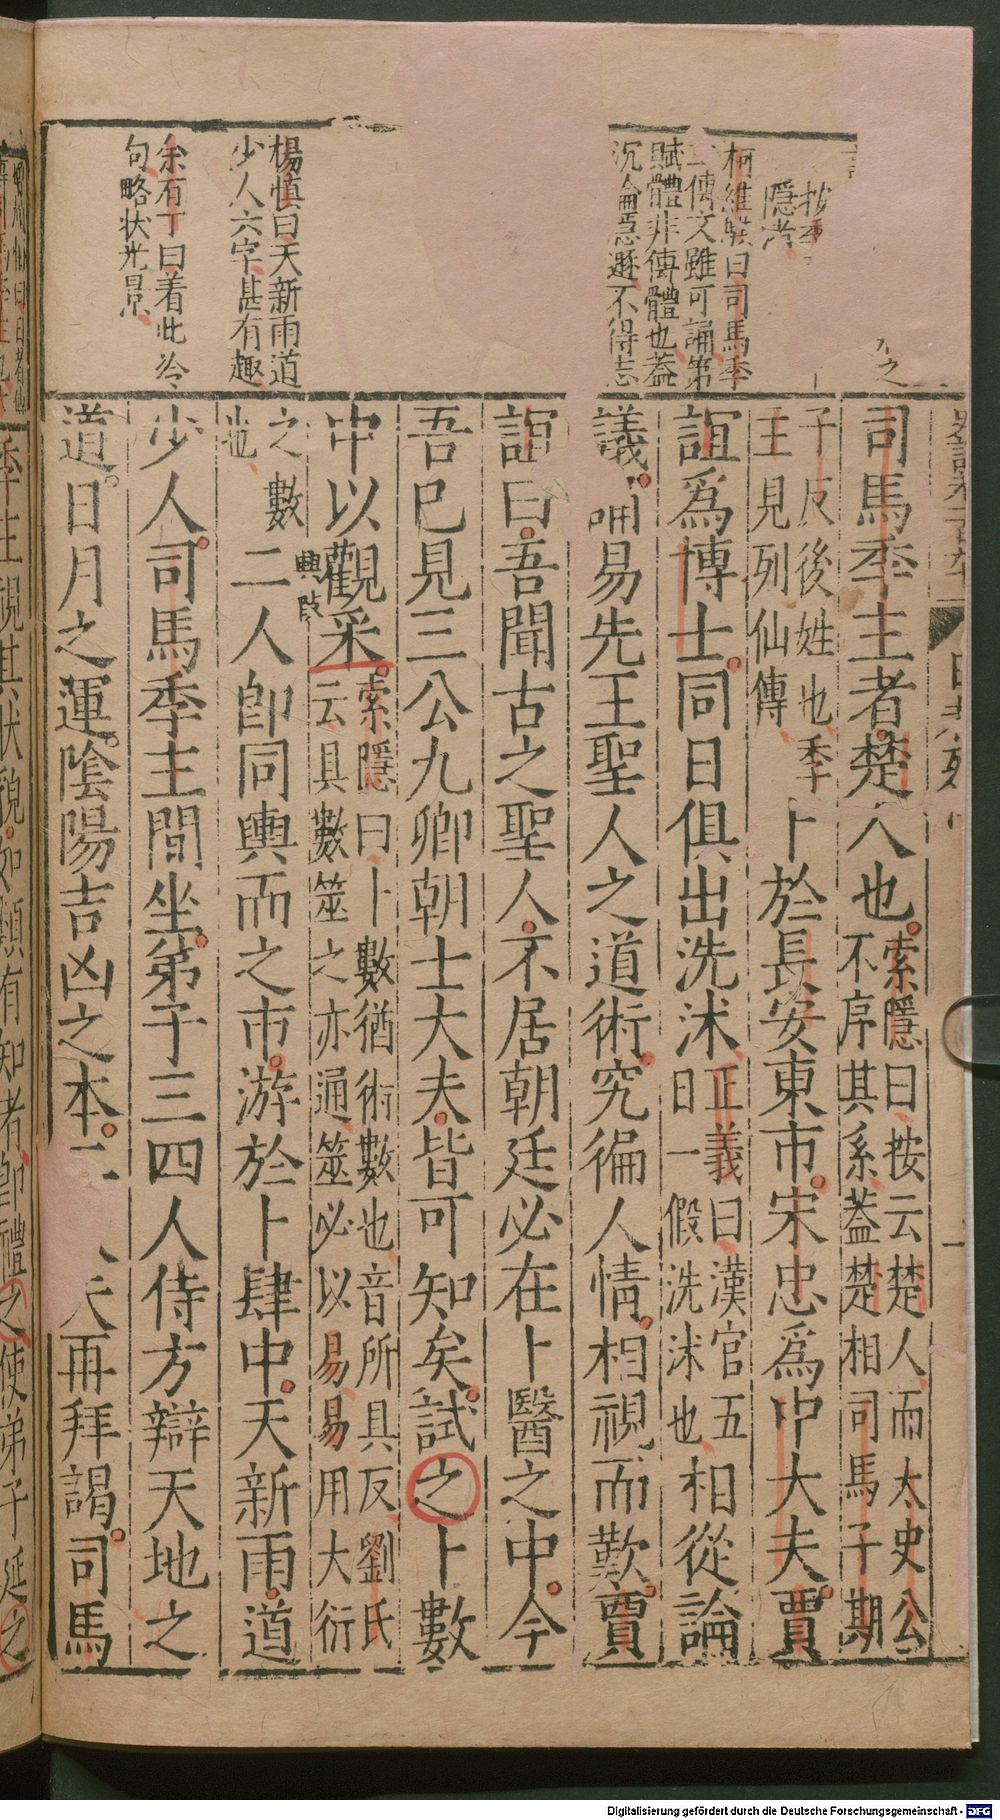 司馬季主者楚人也索隱曰按云楚人而太史公不序其系蓋楚相司馬子期
子反後姓也季主見列仙傳卜於長安東市宋忠爲中大夫賈
誼爲博士同日俱出洗沐正義曰漢官五日一假洗沐也相從論
議誦易先王聖人之道術究徧人情相視而歎賈
誼曰吾聞古之聖人不居朝廷必在卜醫之中今
吾已見三公九卿朝士大夫皆可知矣試之卜數
中以觀采索隱曰卜數猶術數也音所具反劉氏云具數筮之亦通筮必以易易用大衍
之數也二人卽同輿而之市游於卜肆中天新雨道
少人司馬季主閒坐弟子三四人侍方辯天地之
道日月之運陰陽吉凶之本二夫再拜謁司馬
隱者
柯維騏曰司馬季
主傳文雖可誦第
賦體非傳體也蓋
沉淪隱遯不得志
楊慎曰天新雨道
少人六字甚有趣
余有丁曰着此冷
句略狀光景
興致
季主視其狀貌如類有知者卽禮之使弟子延之
Digitalisierung gefördert durch die Deutsche Forschungsgemeinschaft - DFG